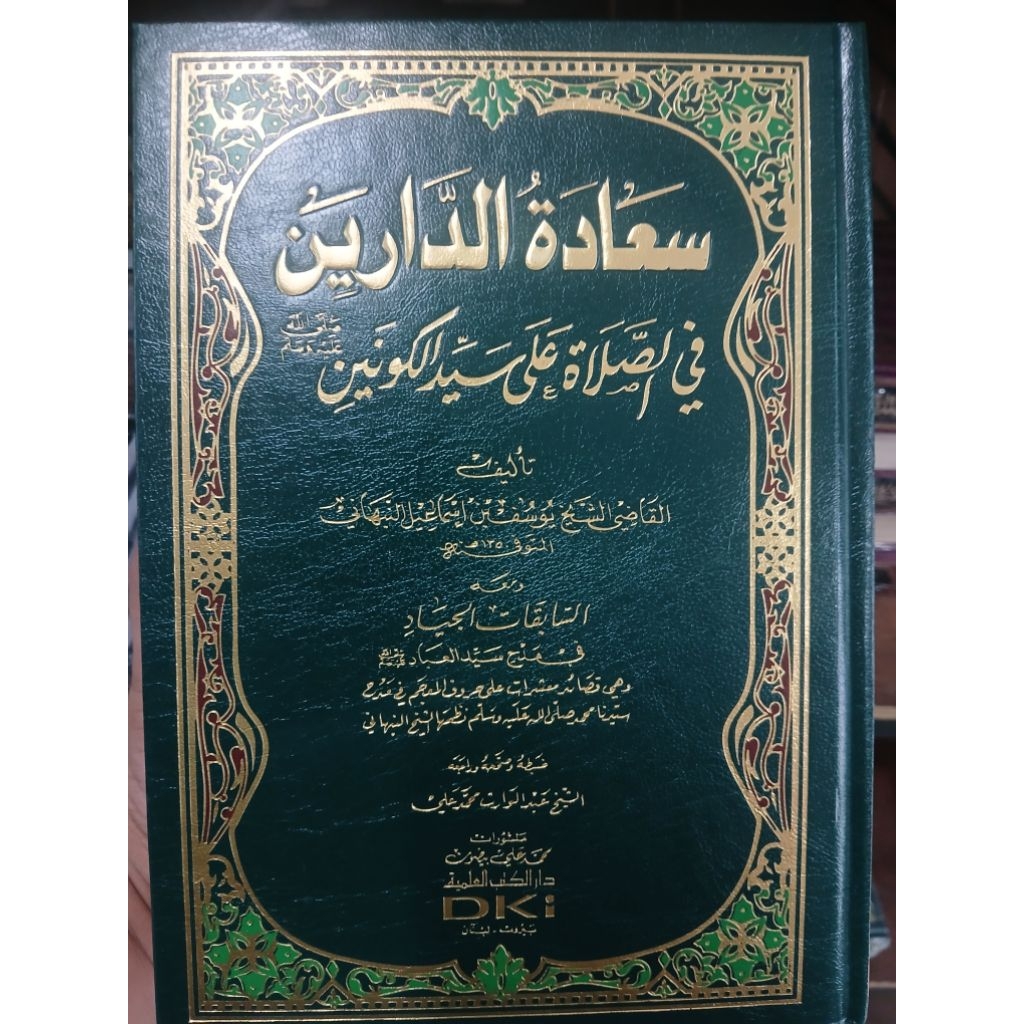 سَعَادَةُ الدَّارَيْنِ
في الصَّلَاةِ عَلَى سَيِّدِ الكَوْنَيْنِ صَلَّى اللَّهُ عَلَيْهِ وَسَلَّمَ
تأليف
القَاضِي الشَّيْخ يُوسُف بْن إِسْمَاعِيل النَّبْهَانِي
المتوفى ١٣٥٠ هـ
ومعه
السَّابِقَات الجِيَاد
في مَدْح سَيِّد العِبَاد ﷺ
وهي قصائد معشرات على حروف المعجم في مدح
سيدنا محمد صلى الله عليه وسلم نظمها الشيخ النبهاني
ضبطه وصححه وراجعه
الشيخ عبد الوارث محمد علي
منشورات
محمد علي بيضون
دار الكتب العلمية
DKi
بيروت - لبنان